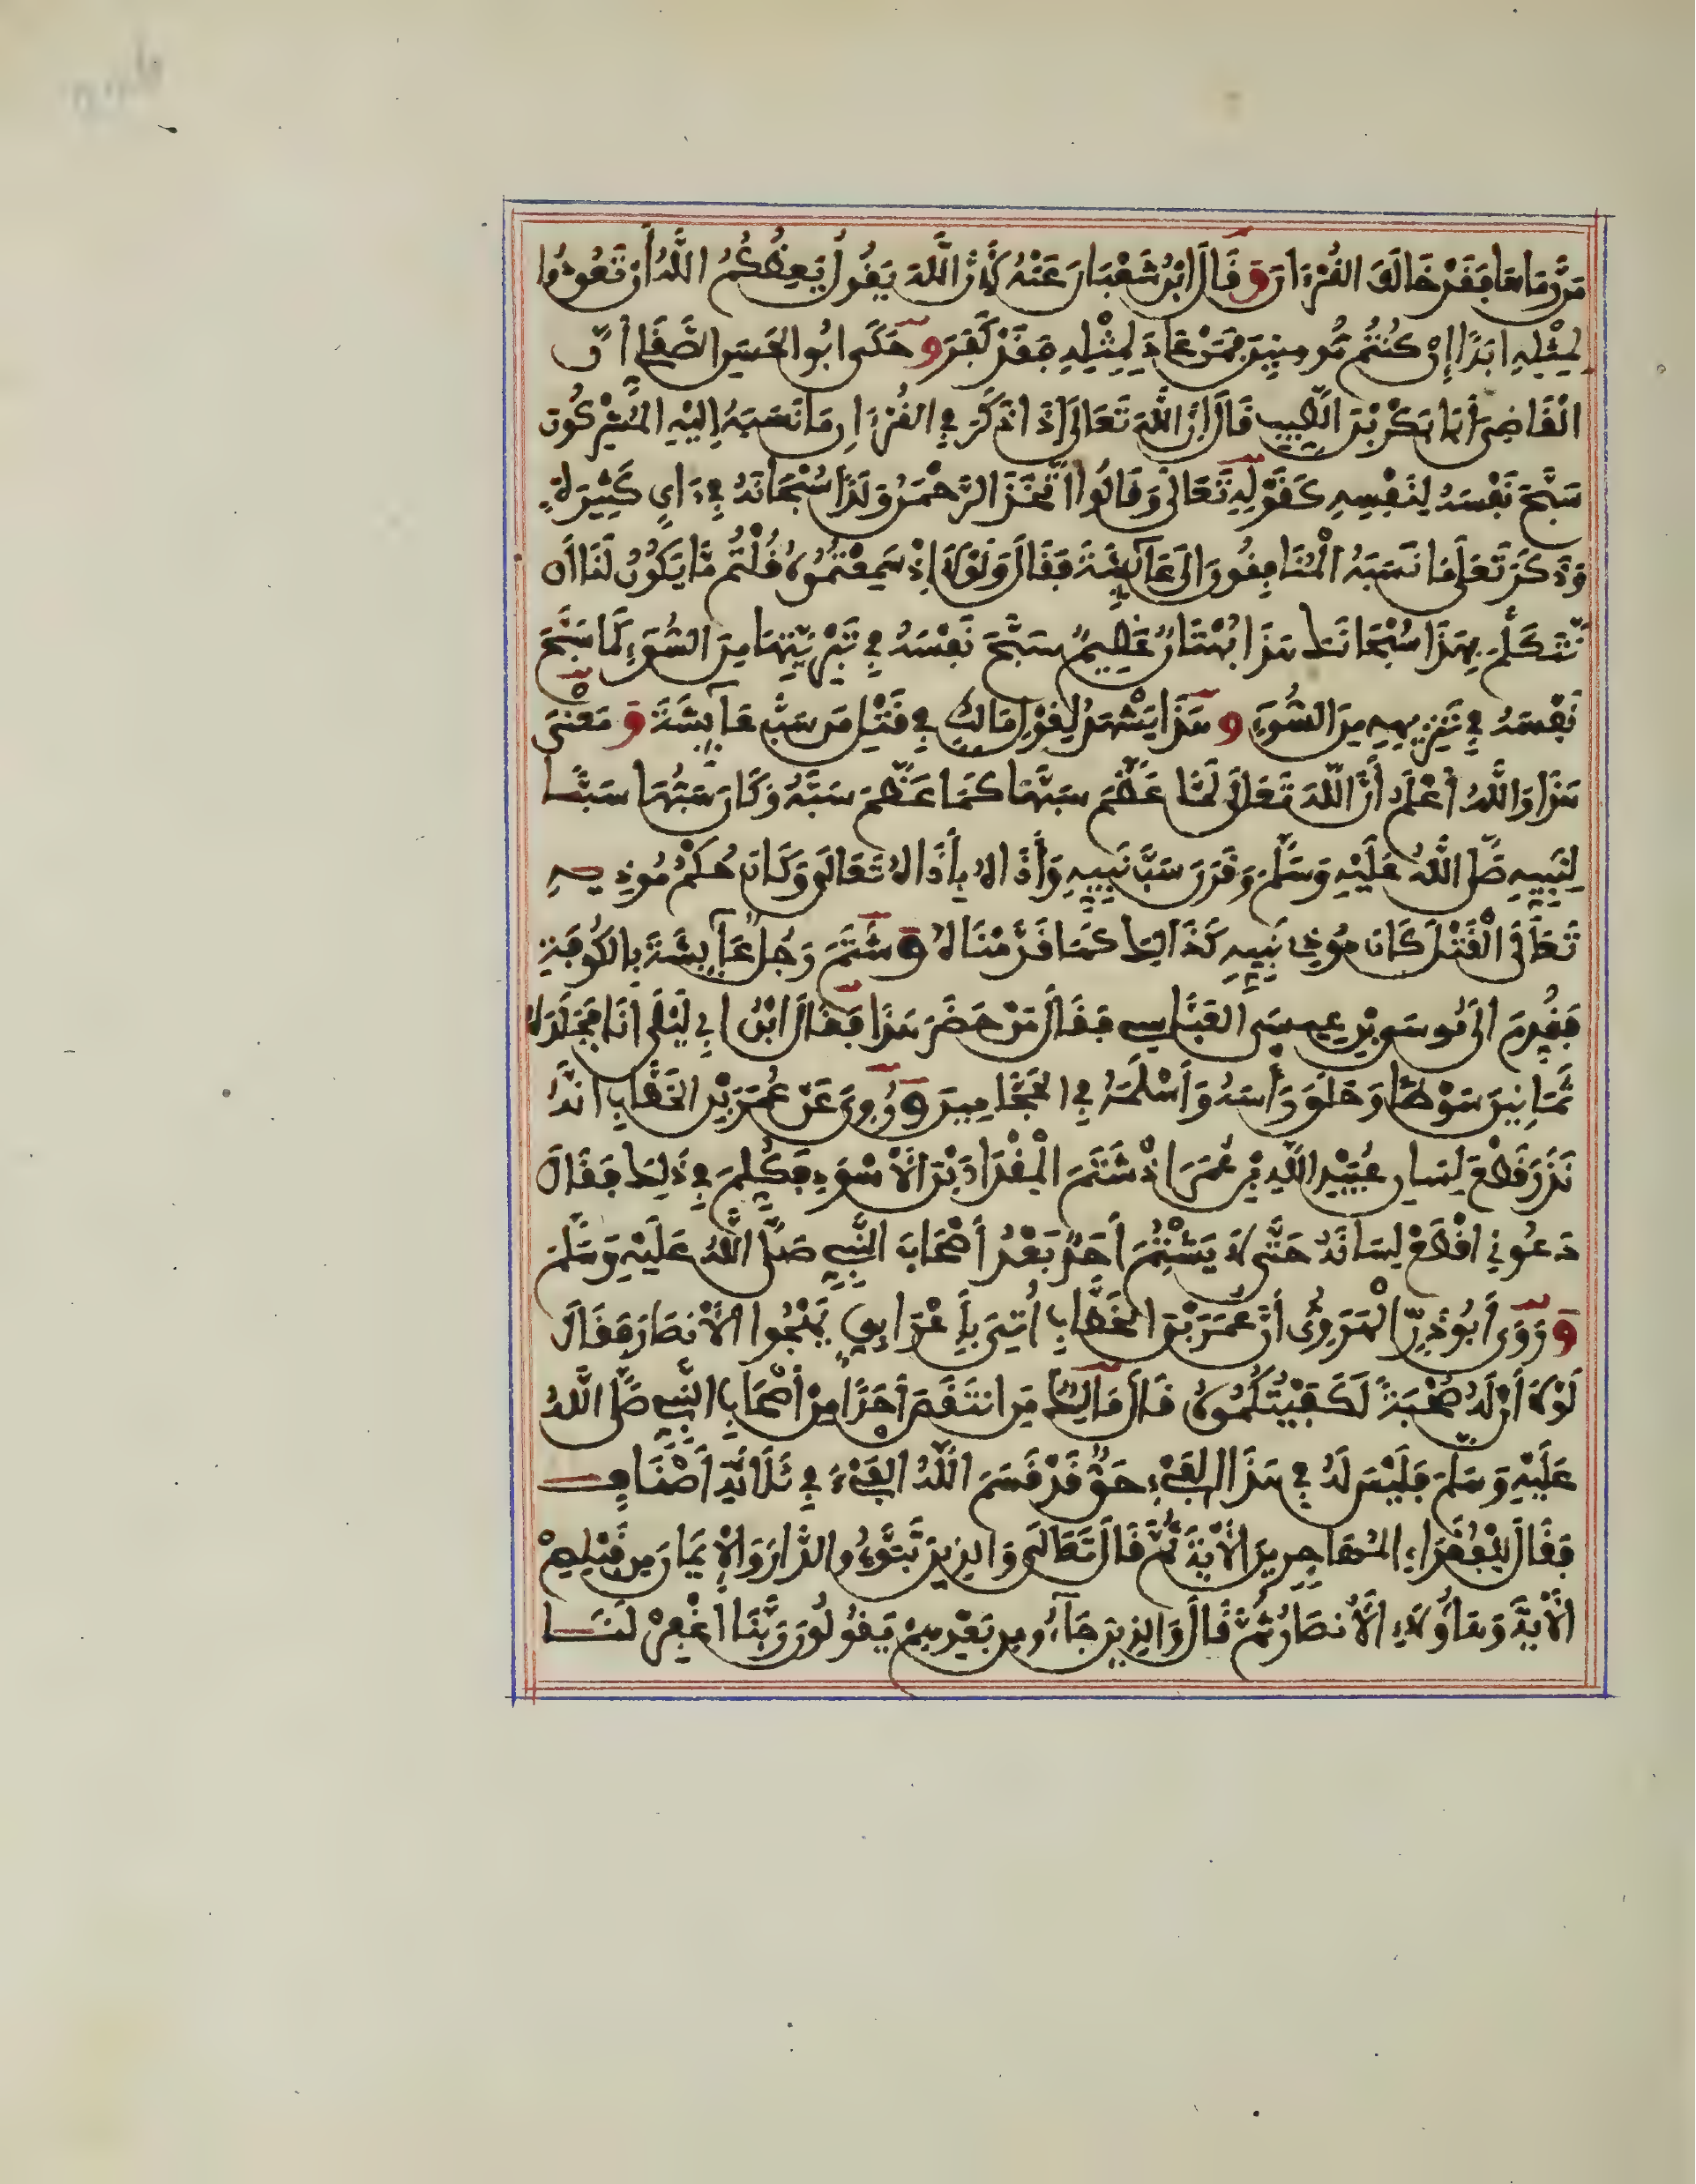 مَن رَّمَاهَا فَقَدْ خَالَفَ الْقُرْءَانَ وَقَالَ ابْنُ شَعْبَانَ عَنْهُ لِأَنَّ اللَّهَ يَقُولُ يَعِظُكُمُ اللَّهُ أَن تَعُودُوا
لِمِثْلِهِ أَبَدًا إِن كُنتُم مُّومِنِينَ فَمَنْ عَادَ لِمِثْلِهِ فَقَدْ كَفَرَ وَحَكَى ابُو الْحَسَنِ الصَّقَلِّي أَنَّ
الْقَاضِيَ أَبَا بَكْرِ بْنَ الطَّيِّبِ قَالَ إِنَّ اللَّهَ تَعَالَى إِذَا ذَكَرَ فِي الْقُرْءَانِ مَا نَسَبَهُ إِلَيْهِ الْمُشْرِكُونَ
سَبَّحَ نَفْسَهُ لِنَفْسِهِ كَقَوْلِهِ تَعَالَى وَقَالُوا اتَّخَذَ الرَّحْمَنُ وَلَدًا سُبْحَانَهُ فِي ءَايٍ كَثِيرَةٍ
وَذَكَرَ تَعَلَى مَا نَسَبَهُ الْمُنَافِقُونَ إِلَى عَآئِشَةَ فَقَالَ وَلَوْلَا إِذْ سَمِعْتُمُوهُ قُلْتُم مَّا يَكُونُ لَنَا أَن
نَّتَكَلَّمَ بِهَذَا سُبْحَانَكَ هَذَا بُهْتَانٌ عَظِيمٌ سَبَّحَ نَفْسَهُ فِي تَبْرِيَتِهَا مِنَ السُّوءِ كَمَا سَبَّحَ
نَفْسَهُ فِي تَنْزِيهِهِ مِنَ السُّوءِ وَهَذَا يَشْهَدُ لِقَوْلِ مَالِكٍ فِي قَتْلِ مَن سَبَّ عَآئِشَةَ وَمَعْنَى
هَذَا وَاللَّهُ أَعْلَمُ أَنَّ اللَّهَ تَعَلَى لَمَّا عَظَّمَ سَبَّهَا كَمَا عَظَّمَ سَبَّهُ وَكَانَ سَبُّهَا سَبًّا
لِنَبِيِّهِ صَلَّى اللَّهُ عَلَيْهِ وَسَلَّمَ وَقَرَنَ سَبَّ نَبِيِّهِ وَأَذَاهُ بِأَذَاهُ تَعَالَى وَكَانَ حُكْمُ مُوذِيهِ
تَعَلَى الْقَتْلَ كَانَ مُوذِي نَبِيِّهِ كَذَالِكَ كَمَا قَدَّمْنَاهُ وَشَتَمَ رَجُلٌ عَآئِشَةَ بِالْكُوفَةِ
فَقُدِمَ إِلَى مُوسَى بْنِ عِيسَى الْعَبَّاسِي فَقَالَ مَنْ حَضَرَ هَذَا فَقَالَ ابْنُ ابِي لَيْلَى أَنَا فَجَلَدَهُ
ثَمَانِينَ سَوْطًا وَحَلَقَ رَأْسَهُ وَأَسْلَمَهُ فِي الْحَجَّامِينَ وَرُوِيَ عَنْ عُمَرَ بْنِ الْخَطَّابِ أَنَّهُ
نَذَرَ قَطْعَ لِسَانِ عُبَيْدِ اللَّهِ بْنِ عُمَرَ إِذْ شَتَمَ الْمِقْدَادَ بْنَ الْأَسْوَدِ فَكُلِّمَ فِي ذَلِكَ فَقَالَ
دَعُونِي اقْطَعْ لِسَانَهُ حَتَّى لَا يَشْتُمَ أَحَدٌ بَعْدُ أَصْحَابَ النَّبِيِّ صَلَّى اللَّهُ عَلَيْهِ وَسَلَّمَ
وَرَوَى أَبُو ذَرٍّ الْهَرَوِيُّ أَنَّ عُمَرَ بْنَ الْخَطَّابِ أُتِيَ بِأَعْرَابِيٍّ يَهْجُوا الْأَنْصَارَ فَقَالَ
لَوْلَا أَنَّ لَهُ صُحْبَةً لَكَفَيْتُكُمُوهُ قَالَ مَالِكٌ مَنِ انتَقَصَ أَحَدًا مِنْ أَصْحَابِ النَّبِيِّ صَلَّى اللَّهُ
عَلَيْهِ وَسَلَّمَ فَلَيْسَ لَهُ فِي هَذَا الْفَيْءِ حَقٌّ قَدْ قَسَمَ اللَّهُ الْفَيْءَ فِي ثَلَاثَةِ أَصْنَافٍ
فَقَالَ لِلْفُقَرَاءِ الْمُهَاجِرِينَ الْآيَةَ ثُمَّ قَالَ تَعَالَى وَالذِينَ تَبَوَّءُو الدَّارَ وَالْإِيمَانَ مِن قَبْلِهِمْ
الْآيَةَ وَهَاؤُلَاءِ الْأَنصَارُ ثُمَّ قَالَ وَالذِينَ جَآءُو مِن بَعْدِهِمْ يَقُولُونَ رَبَّنَا اغْفِرْ لَنَا